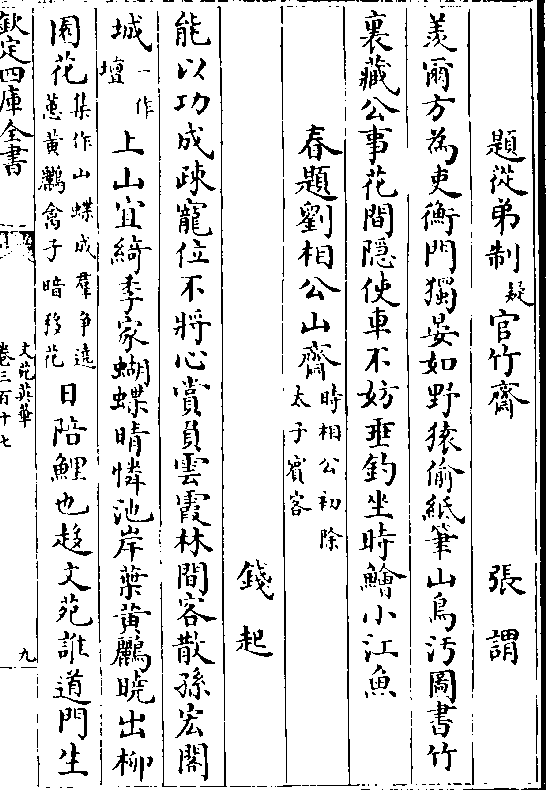 題從弟制疑官竹齋　張謂
羨爾方為吏衡門獨晏如野猿偷紙筆山鳥汚圖書竹
裏藏公事花間隠使車不妨垂釣坐時鱠小江魚
春題劉相公山齋時相公初除太子賓客
錢起
能以功成疎寵位不將心賞負雲霞林間客散孫宏閣
城一作壇上山宜綺季家蝴蝶晴憐池岸葉黄鸝曉出柳
園花集作山蝶成羣爭遶蕙黄鸝禽子暗移花日陪鯉也趍文苑誰道門生
欽定四庫全書
文苑英華
卷三百十七
九